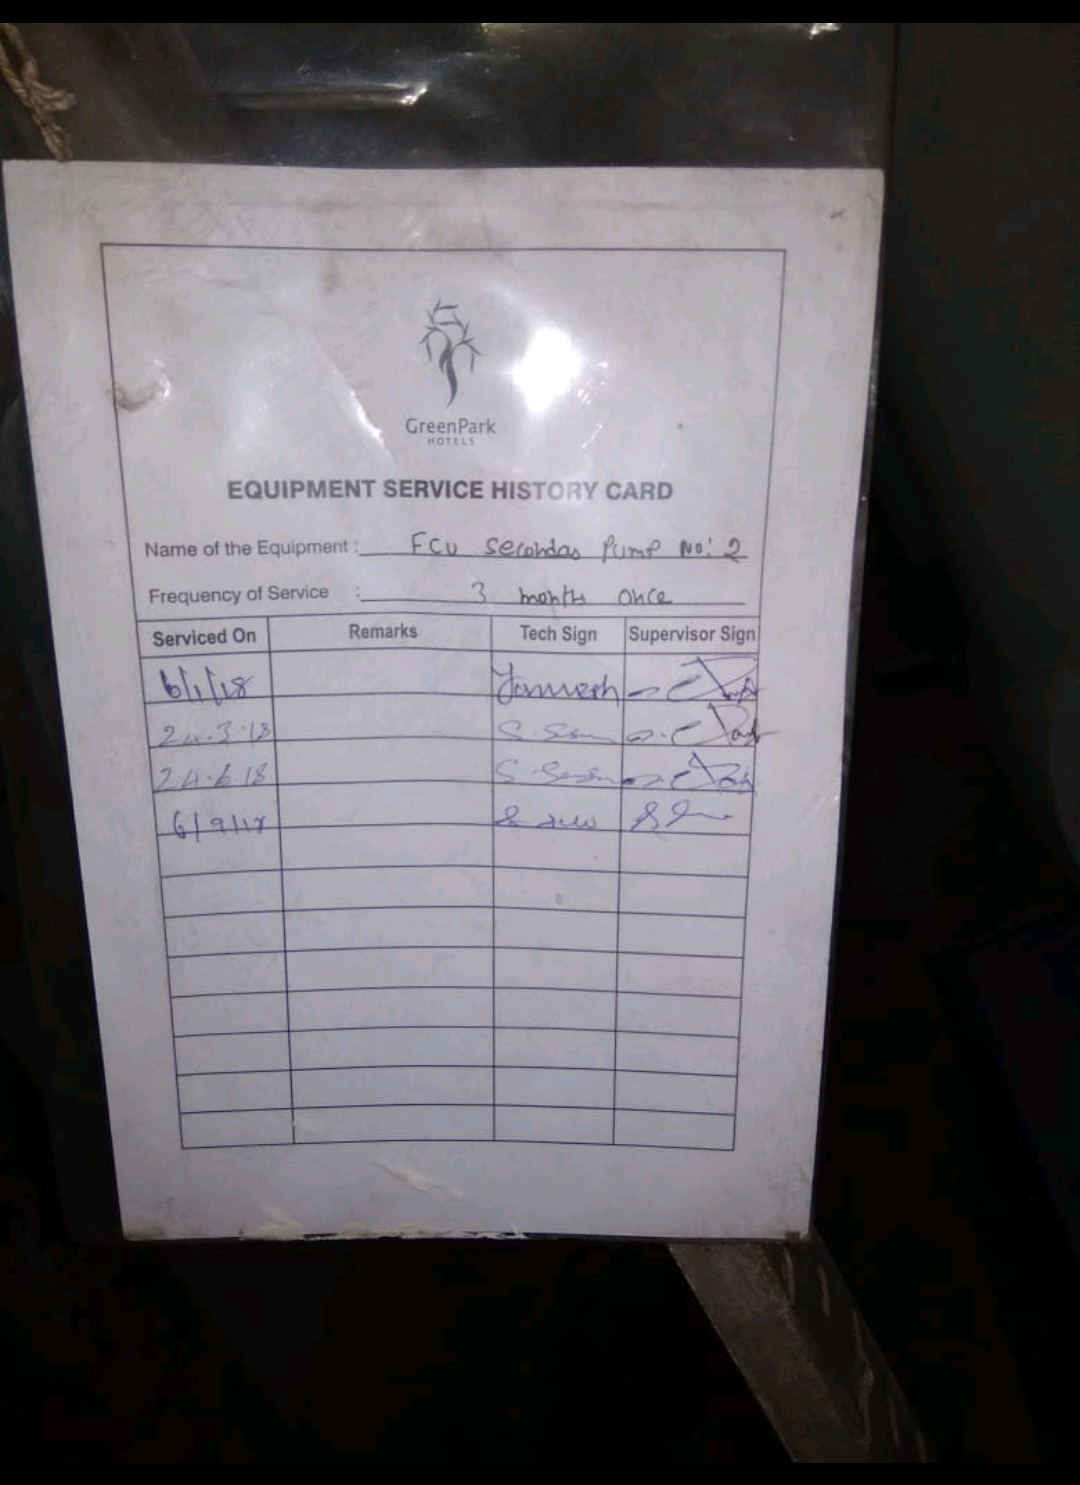 GreenPark
HOTELS
EQUIPMENT SERVICE HISTORY CARD
Name of the Equipment : FCU Secondas Pump No: 2
Frequency of Service : 3 months once
Serviced On Remarks Tech Sign Supervisor Sign
6/1/18
24.3.18
24.6.18
6/9/18